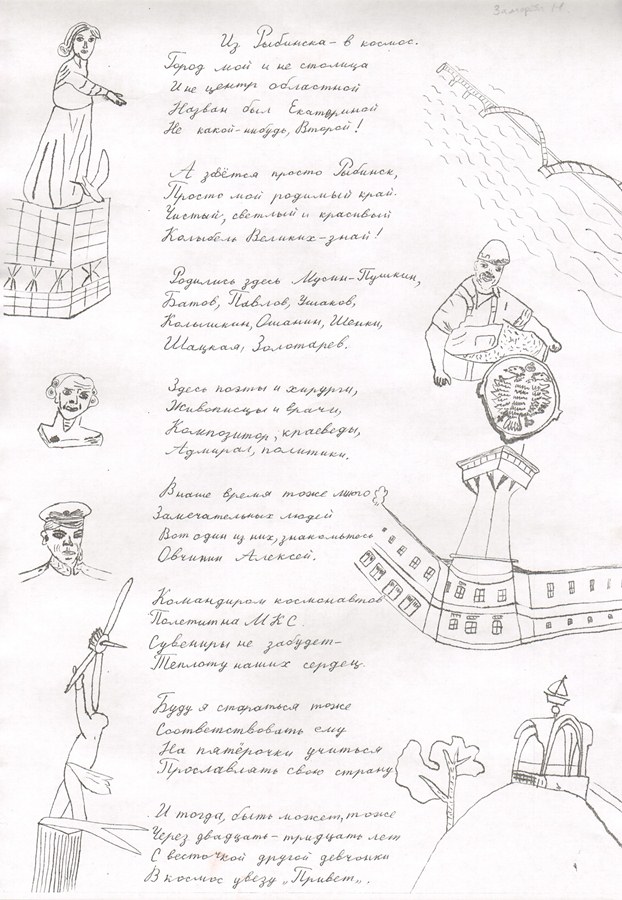 Из Рыбинска - в космос.
Город мой и не столица
И не центр областной
Назван был Екатериной
Не какой-нибудь, Второй!
А зовётся просто Рыбинск,
Просто мой родимый край.
Чистый, светлый и красивый
Колыбель Великих - знай!
Родились здесь Мусин-Пушкин,
Батов, Павлов, Ушаков,
Колышкин, Ошанин, Шенки,
Шацкая, Золотарев.
Здесь поэты и хирурги,
Живописцы и врачи,
Композитор, краеведы,
Адмирал, политики.
В наше время тоже много
Замечательных людей
Вот один из них, знакомьтесь
Овчинин Алексей.
Командиром космонавтов
Полетит на МКС.
Сувениры не забудет-
Теплоту наших сердец.
Буду я стараться тоже
Соответствовать ему
На пятёрочки учиться
Прославлять свою страну
И тогда, быть может, тоже
Через двадцать - тридцать лет
С весточкой другой девчонки
В космос увезу „Привет„.